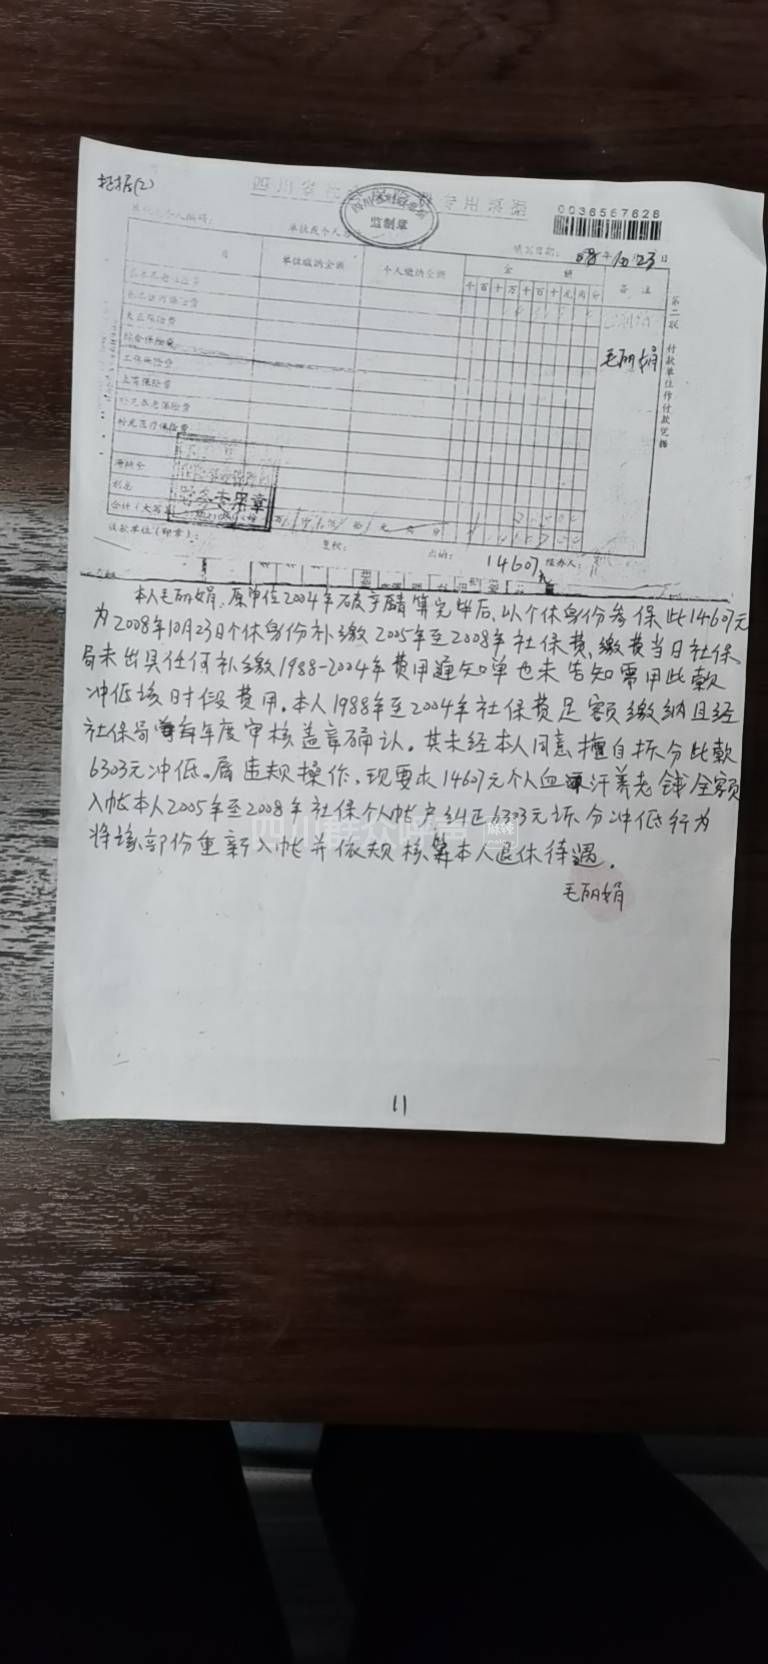 0036567628
监制章
单位缴纳金额 个人缴纳金额 金 额 备 注
千百十万千百十元角分
毛丽娟
第二联 付款单位作付款凭据
失业保险费
综合保险费
工伤保险费
生育保险费
补充养老保险费
补充医疗保险费
滞纳金
利息
合计(大写)
收款单位(印章): 复核: 出纳: 14607 经办人:
本人毛丽娟,原单位2004年破产清算完毕后,以个体身份参保,此14607元
为2008年10月23日个体身份补缴2005年至2008年社保费,缴费当日社保
局未出具任何补缴1988-2004年费用通知单也未告知需用此款
冲低该时段费用。本人1988年至2004年社保费足额缴纳且经
社保局每年度审核盖章确认。其未经本人同意擅自拆分此款
6303元冲低。属违规操作,现要求14607元个人血汗养老钱全额
入帐本人2005年至2008年社保个人帐户纠正6303元拆分冲低行为
将该部份重新入帐并依规核算本人退休待遇。
毛丽娟
四川群众呼声
11